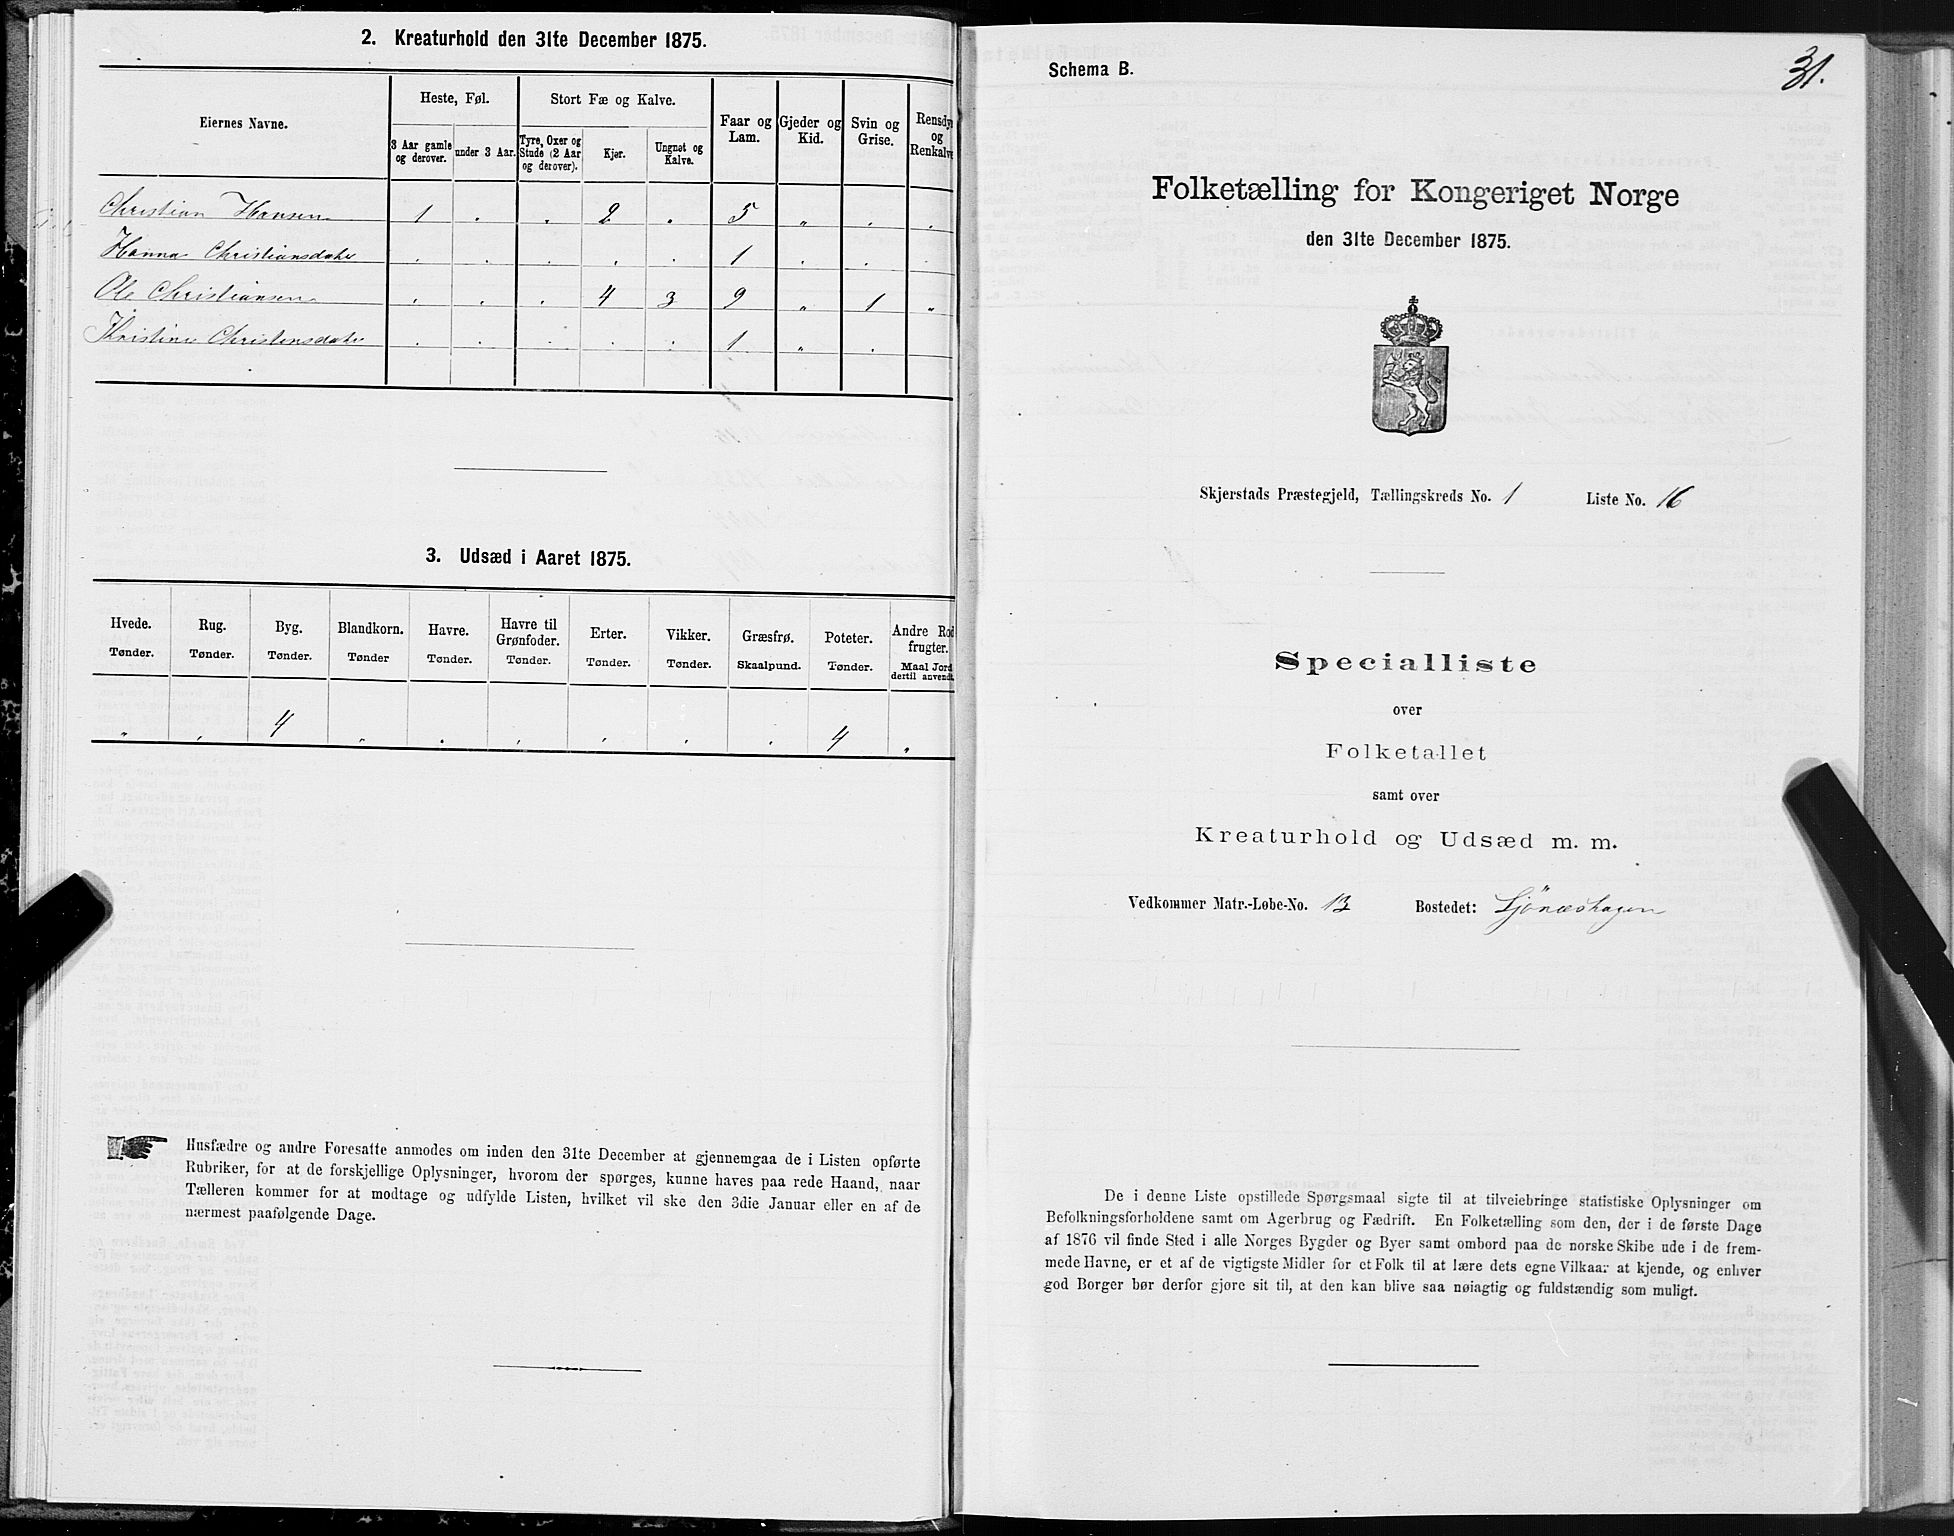 2. Kreaturhold den 31te December 1875.
Eiernes Navne.
Heste, Føl.
Stort Fæ og Kalve.
Faar og Lam.
Gjeder og Kid.
Svin og Grise.
Rensdyr og Renkalve
3 Aar gamle og derover.
under 3 Aar.
Tyre, Oxer og Stude (2 Aar og derover).
Kjør.
Ungnøt og Kalve.
Christian Hansen 1 . . 2 . 5 „ . .
Hanna Christiansdater . . . . . 1 . . .
Ole Christiansen . . . 4 3 9 „ 1 „
Kristine Christensdater . . . . . 1 „ .
3. Udsæd i Aaret 1875.
Hvede. Rug. Byg. Blandkorn. Havre. Havre til Grønfoder. Erter. Vikker. Græsfrø. Poteter. Andre Rodfrugter.
Tønder. Tønder. Tønder. Tønder Tønder. Tønder. Tønder. Tønder. Skaalpund. Tønder. Maal Jord dertil anvendt.
„ . 4 „ . . . . . 4 „
Husfædre og andre Foresatte anmodes om inden den 31te December at gjennemgaa de i Listen opførte
Rubriker, for at de forskjellige Oplysninger, hvorom der spørges, kunne haves paa rede Haand, naar
Tælleren kommer for at modtage og udfylde Listen, hvilket vil ske den 3die Januar eller en af de
nærmest paafølgende Dage.
Schema B.
31.
Folketælling for Kongeriget Norge
den 31te December 1875.
Skjerstads Præstegjeld, Tællingskreds No. 1 Liste No. 16
Specialliste
over
Folketallet
samt over
Kreaturhold og Udsæd m. m.
Vedkommer Matr.-Løbe-No. 13 Bostedet: Ljönæshagen
De i denne Liste opstillede Spørgsmaal sigte til at tilveiebringe statistiske Oplysninger om
Befolkningsforholdene samt om Agerbrug og Fædrift. En Folketælling som den, der i de første Dage
af 1876 vil finde Sted i alle Norges Bygder og Byer samt ombord paa de norske Skibe ude i de frem-
mede Havne, er et af de vigtigste Midler for et Folk til at lære dets egne Vilkaar at kjende, og enhver
god Borger bør derfor gjøre sit til, at den kan blive saa nøiagtig og fuldstændig som muligt.